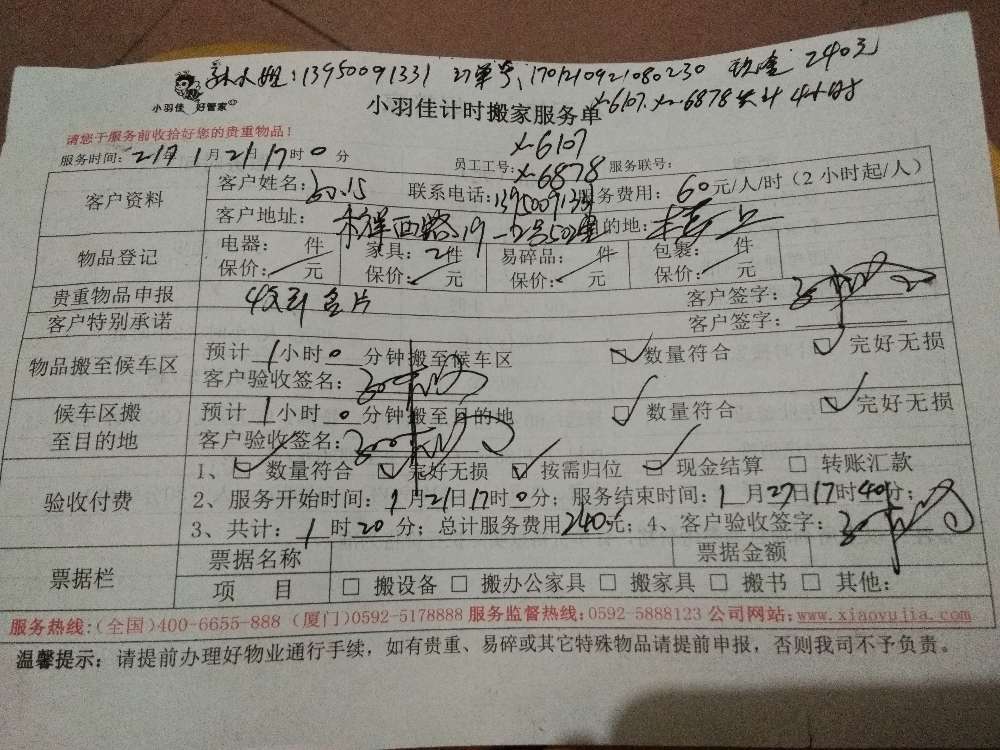 小姐:13950091331 订单号:1701210921080230 现金 240元
小羽佳 好管家
小羽佳计时搬家服务单
x-6107.x-6878共计4小时
请您于服务前收拾好您的贵重物品!
服务时间: 年1月21日17时0分 员工工号: x-6107 x-6878 服务联号:
客户资料
客户姓名: 联系电话:13950091331 服务费用:60元/人/时(2小时起/人)
客户地址: 西路19 的地:楼上
物品登记
电器: 件 家具:2件 易碎品: 件 包裹: 件
保价: 元 保价: 元 保价: 元 保价: 元
贵重物品申报 客户签字:
客户特别承诺 客户签字:
物品搬至候车区
预计1小时0分钟搬至候车区 数量符合 完好无损
客户验收签名:
候车区搬至目的地
预计1小时0分钟搬至目的地 数量符合 完好无损
客户验收签名:
验收付费
1、 数量符合 完好无损 按需归位 现金结算 转账汇款
2、服务开始时间:1月21日17时0分;服务结束时间:1月27日17时40分;
3、共计:1时20分;总计服务费用240元;4、客户验收签字:
票据栏
票据名称 票据金额
项目 搬设备 搬办公家具 搬家具 搬书 其他:
服务热线:(全国)400-6655-888 (厦门)0592-5178888 服务监督热线:0592-5888123 公司网站:www.xiaoyujia.com
温馨提示:请提前办理好物业通行手续,如有贵重、易碎或其它特殊物品请提前申报,否则我司不予负责。